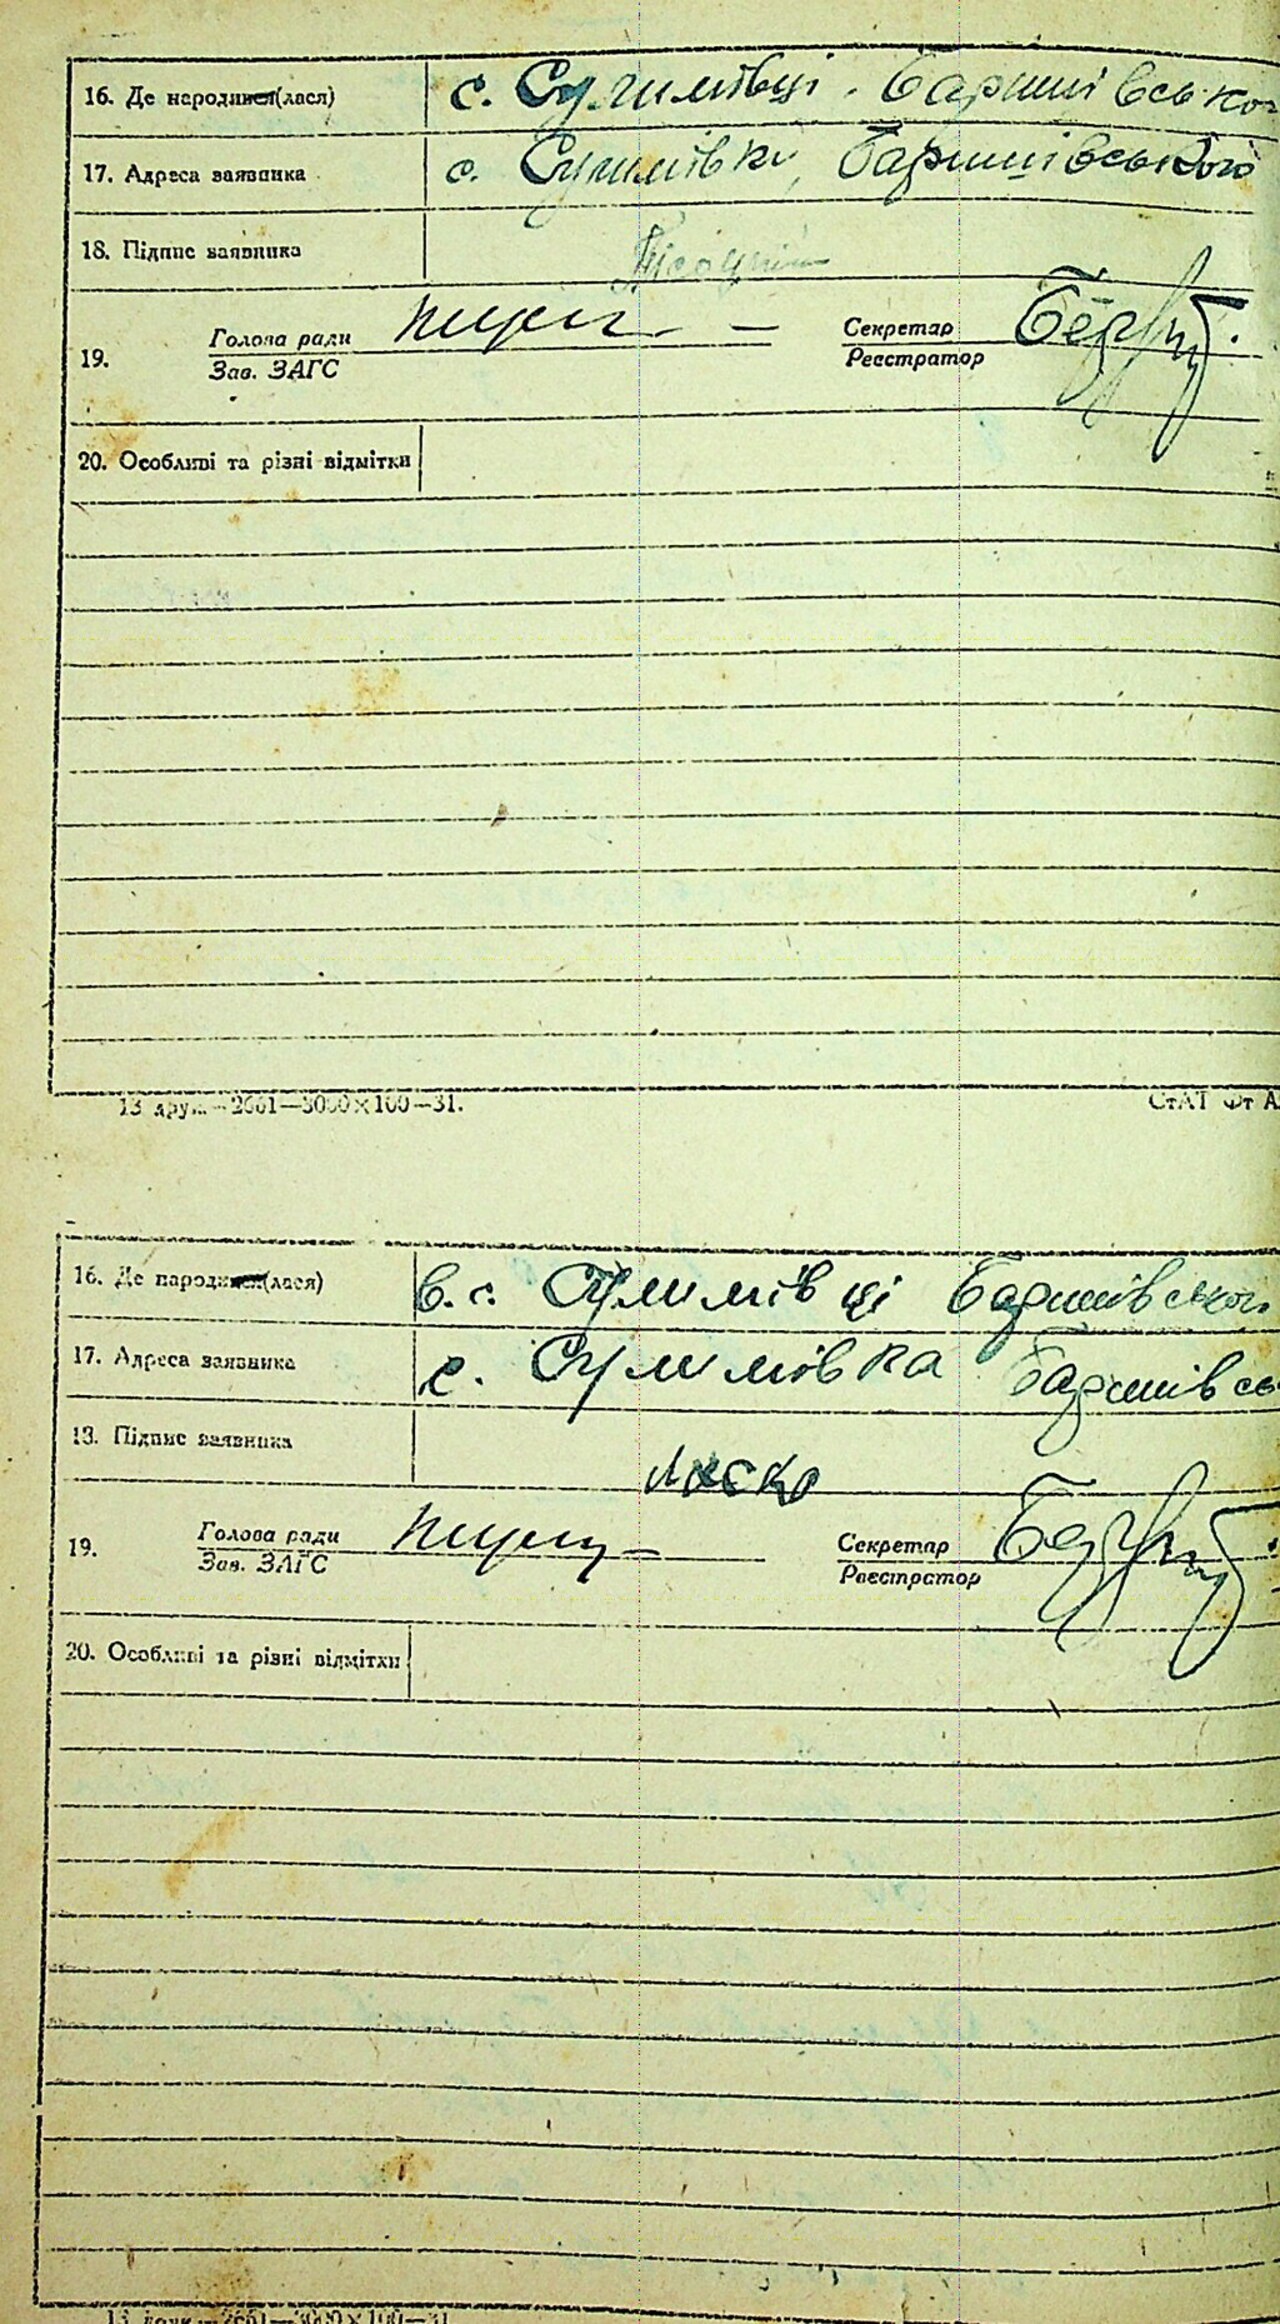 16. Де народився(лася) с. Сулимівці. Баришівсько
17. Адреса заявника с. Сулимівки, Баришівського
18. Підпис заявника
19. Голова ради Секретар
Зав. ЗАГС Реєстратор
20. Особливі та різні відмітки
13 друк.—2661—3000×100—31. СтАТ Фт А
16. Де народився(лася) в. с. Сулимівці Баришівського
17. Адреса заявника с. Сулимівка Баришівсь
18. Підпис заявника
19. Голова ради Секретар
Зав. ЗАГС Реєстратор
20. Особливі та різні відмітки
13 друк.—2661—3000×100—31